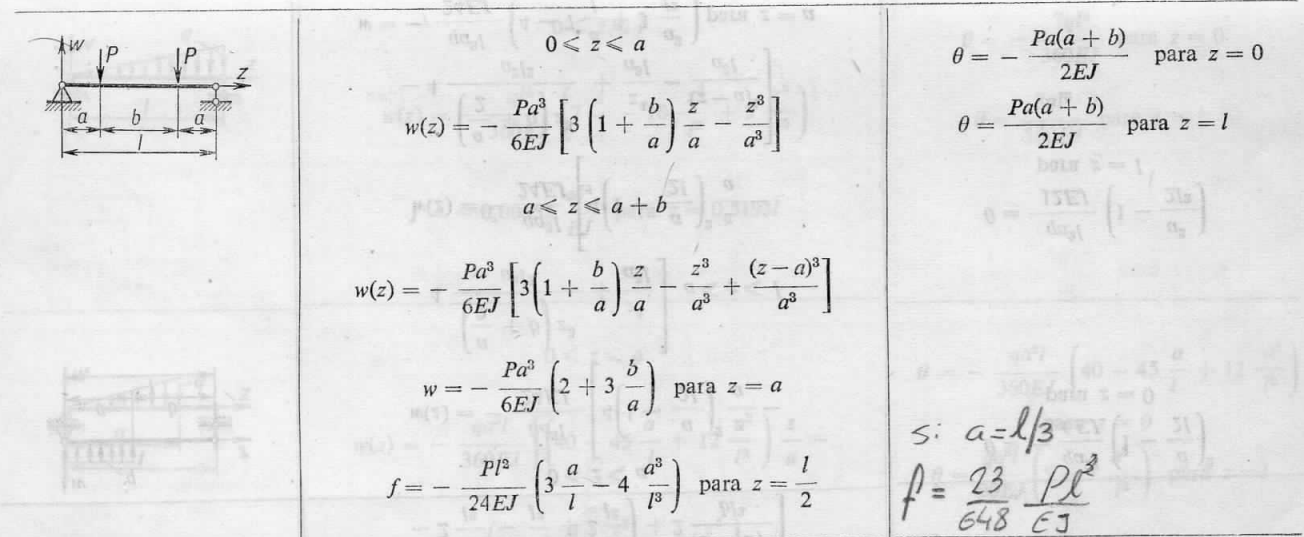 w
P P
z
a b a
l
0 ⩽ z ⩽ a
w(z) = − Pa³/6EJ [3 (1 + b/a) z/a − z³/a³]
a ⩽ z ⩽ a + b
w(z) = − Pa³/6EJ [3(1 + b/a) z/a − z³/a³ + (z − a)³/a³]
w = − Pa³/6EJ (2 + 3 b/a) para z = a
f = − Pl³/24EJ (3 a/l − 4 a³/l³) para z = l/2
θ = − Pa(a + b)/2EJ para z = 0
θ = Pa(a + b)/2EJ para z = l
si a = l/3
f = 23/648 Pl³/EJ